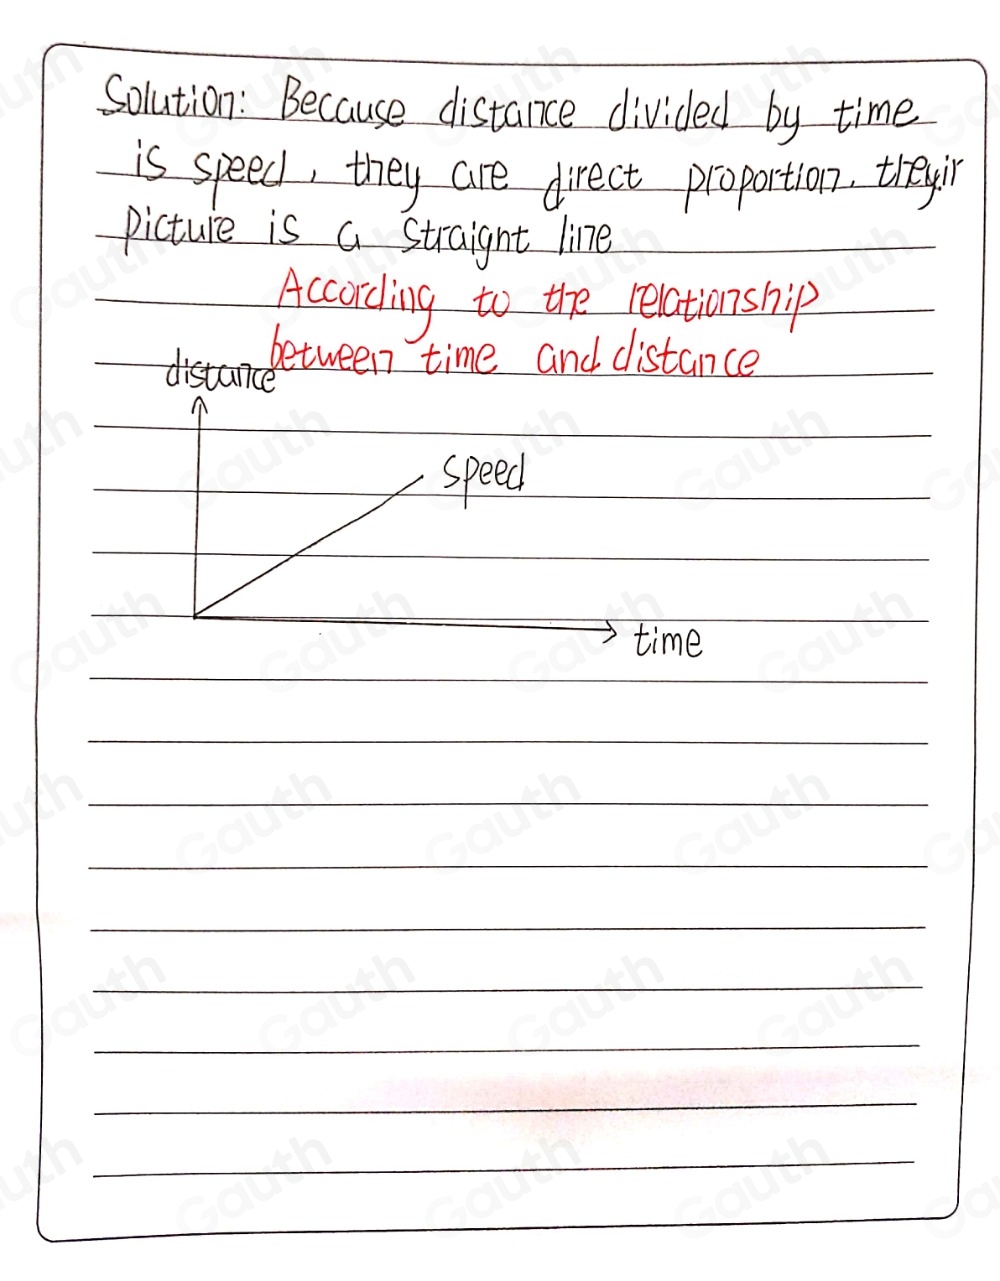 Solution: Because distance divided by time
is speed, they are direct proportion. theyir
picture is a straignt line
According to the relationship
between time and distance
distance
speed
time
Gauth